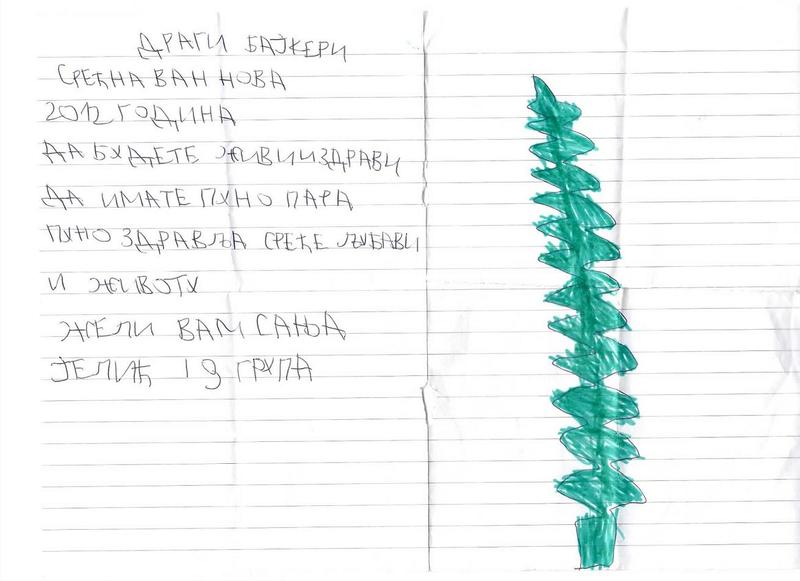 ДРАГИ БАЈКЕРИ
СРЕЋНА ВАН НОВА
2012 ГОДИНА
ДА БУДЕТЕ ЖИВИ И ЗДРАВИ
ДА ИМАТЕ ПУНО ПАРА
ПУНО ЗДРАВЉА СРЕЋЕ ЉУБАВИ
И ЖИВОТУ
ЖЕЛИ ВАМ САЊА
ЈЕЛИЋ 19 ГРУПА